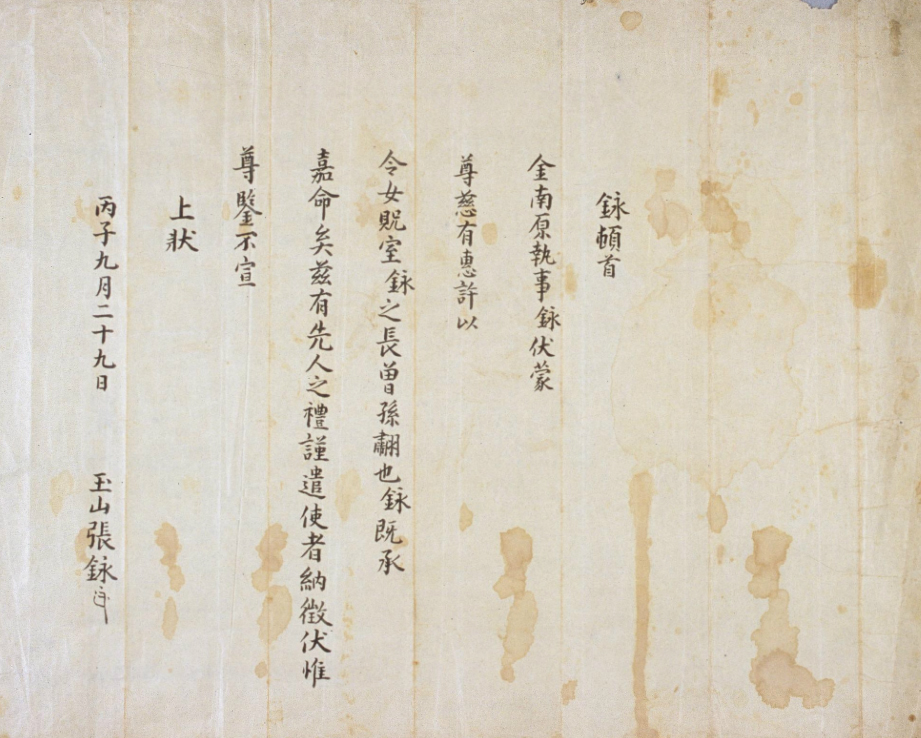 銢頓首
金南原執事銢伏蒙
尊慈有惠許以
令女貺室銢之長曽孫翿也銢旣承
嘉命矣茲有先人之禮謹遣使者納徵伏惟
尊鑒不宣
上狀
丙子九月二十九日 玉山張銢